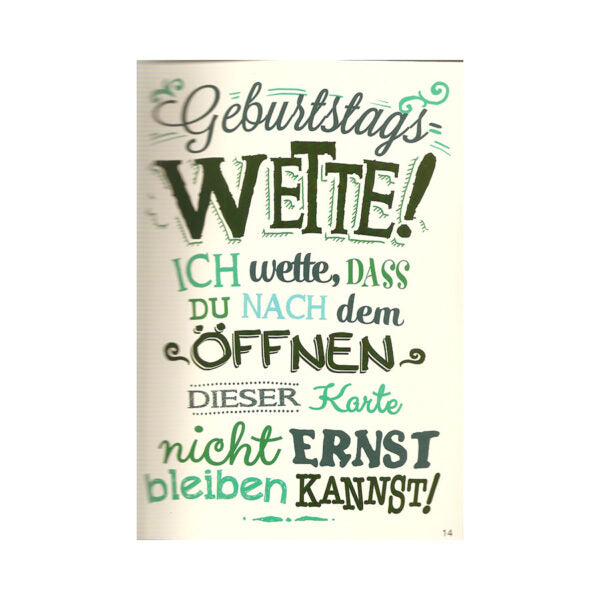 Geburtstags=
WETTE!
ICH wette, DASS
DU NACH dem
ÖFFNEN
DIESER Karte
nicht ERNST
bleiben KANNST!
14